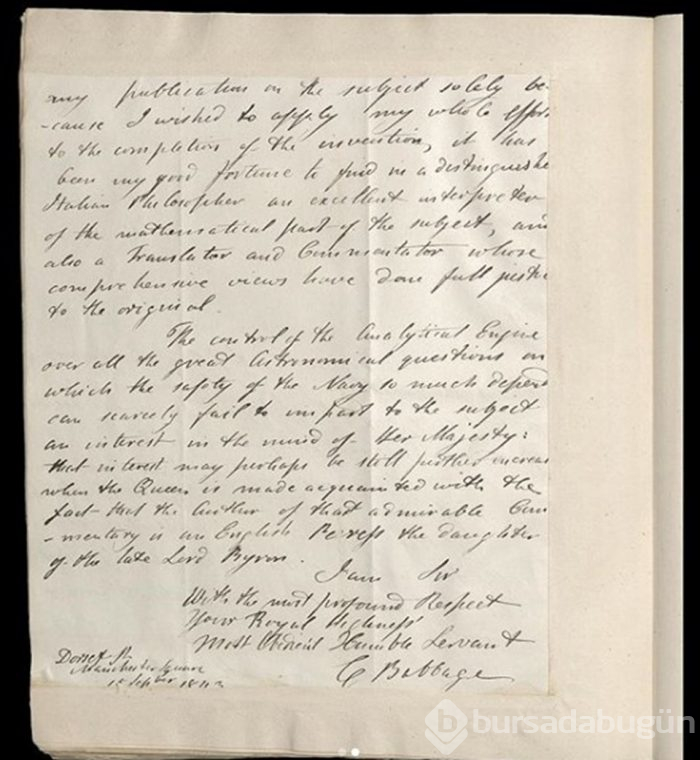 any publication on the subject solely be-
-cause I wished to apply my whole effort
to the completion of the invention, it has
been my good fortune to find in a distinguishe
Italian Philosopher an excellent interpreter
of the mathematical part of the subject, and
also a Translator and Commentator whose
comprehensive views have done full justice
to the original.
The control of the Analytical Engine
over all the great Astronomical questions on
which the safety of the Navy so much depend
can scarcely fail to impart to the subject
an interest in the mind of Her Majesty:
that interest may perhaps be still further increas
when the Queen is made acquainted with the
fact that the Author of that admirable Com
-mentary is an English Peeress the daughter
of the late Lord Byron.
I am Sir
With the most profound Respect
Your Royal Highness'
Most Obedient Humble Servant
C Babbage
Dorset St
Manchester Square
1st Septber 1843
bursadabugün